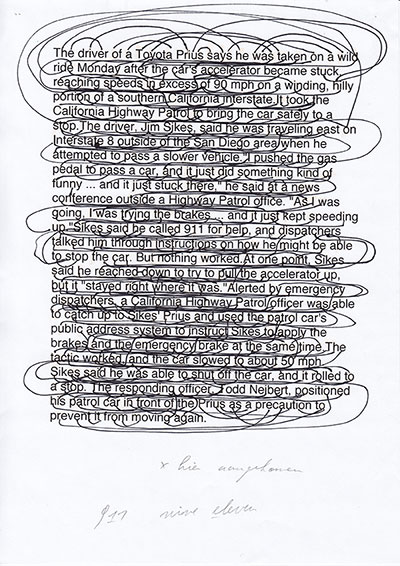 The driver of a Toyota Prius says he was taken on a wild
ride Monday after the car's accelerator became stuck,
reaching speeds in excess of 90 mph on a winding, hilly
portion of a southern California interstate.It took the
California Highway Patrol to bring the car safely to a
stop.The driver, Jim Sikes, said he was traveling east on
Interstate 8 outside of the San Diego area when he
attempted to pass a slower vehicle."I pushed the gas
pedal to pass a car, and it just did something kind of
funny ... and it just stuck there," he said at a news
conference outside a Highway Patrol office. "As I was
going, I was trying the brakes ... and it just kept speeding
up."Sikes said he called 911 for help, and dispatchers
talked him through instructions on how he might be able
to stop the car. But nothing worked.At one point, Sikes
said he reached down to try to pull the accelerator up,
but it "stayed right where it was."Alerted by emergency
dispatchers, a California Highway Patrol officer was able
to catch up to Sikes' Prius and used the patrol car's
public address system to instruct Sikes to apply the
brakes and the emergency brake at the same time.The
tactic worked, and the car slowed to about 50 mph.
Sikes said he was able to shut off the car, and it rolled to
a stop. The responding officer, Todd Neibert, positioned
his patrol car in front of the Prius as a precaution to
prevent it from moving again.
x hier aangekomen
911 nine eleven